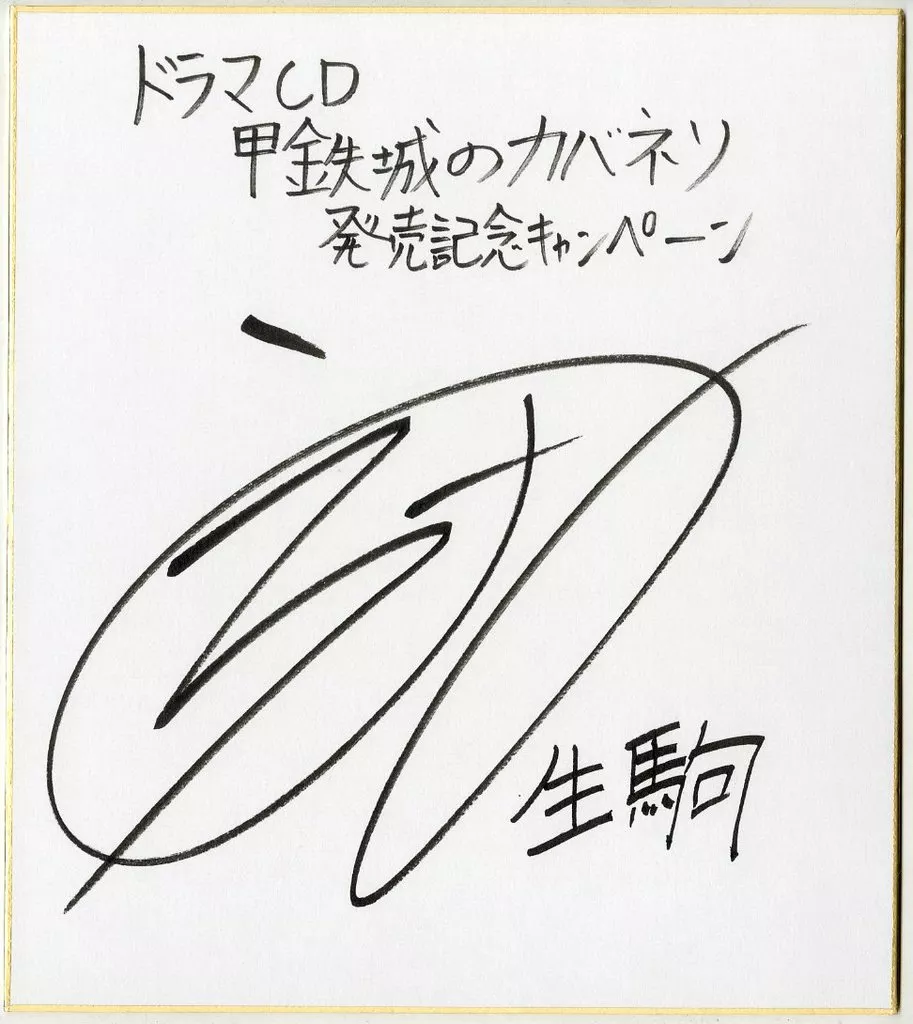 ドラマCD
甲鉄城のカバネリ
発売記念キャンペーン
生駒